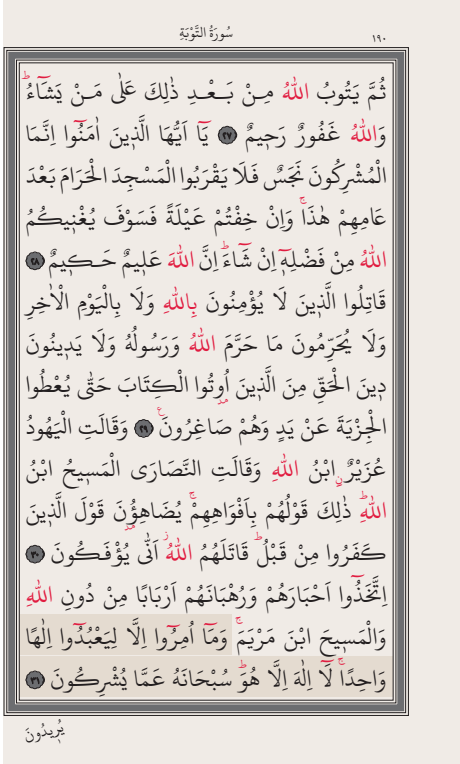 سُورَةُ التَّوْبَةِ ١٩٠
ثُمَّ يَتُوبُ اللهُ مِنْ بَعْدِ ذٰلِكَ عَلٰى مَنْ يَشَٓاءُۜ
وَاللهُ غَفُورٌ رَح۪يمٌ ﴿٢٧﴾ يَٓا اَيُّهَا الَّذ۪ينَ اٰمَنُٓوا اِنَّمَا
الْمُشْرِكُونَ نَجَسٌ فَلَا يَقْرَبُوا الْمَسْجِدَ الْحَرَامَ بَعْدَ
عَامِهِمْ هٰذَاۚ وَاِنْ خِفْتُمْ عَيْلَةً فَسَوْفَ يُغْن۪يكُمُ
اللهُ مِنْ فَضْلِه۪ٓ اِنْ شَٓاءَۜ اِنَّ اللهَ عَل۪يمٌ حَك۪يمٌ ﴿٢٨﴾
قَاتِلُوا الَّذ۪ينَ لَا يُؤْمِنُونَ بِاللهِ وَلَا بِالْيَوْمِ الْاٰخِرِ
وَلَا يُحَرِّمُونَ مَا حَرَّمَ اللهُ وَرَسُولُهُ وَلَا يَد۪ينُونَ
د۪ينَ الْحَقِّ مِنَ الَّذ۪ينَ اُو۫تُوا الْكِتَابَ حَتّٰى يُعْطُوا
الْجِزْيَةَ عَنْ يَدٍ وَهُمْ صَاغِرُونَ۟ ﴿٢٩﴾ وَقَالَتِ الْيَهُودُ
عُزَيْرٌۨ ابْنُ اللهِ وَقَالَتِ النَّصَارَى الْمَس۪يحُ ابْنُ
اللهِۜ ذٰلِكَ قَوْلُهُمْ بِاَفْوَاهِهِمْۚ يُضَاهِؤُ۫نَ قَوْلَ الَّذ۪ينَ
كَفَرُوا مِنْ قَبْلُۜ قَاتَلَهُمُ اللهُۘ اَنّٰى يُؤْفَكُونَ ﴿٣٠﴾
اِتَّخَذُٓوا اَحْبَارَهُمْ وَرُهْبَانَهُمْ اَرْبَابًا مِنْ دُونِ اللهِ
وَالْمَس۪يحَ ابْنَ مَرْيَمَۚ وَمَٓا اُمِرُٓوا اِلَّا لِيَعْبُدُٓوا اِلٰهًا
وَاحِدًاۚ لَٓا اِلٰهَ اِلَّا هُوَۜ سُبْحَانَهُ عَمَّا يُشْرِكُونَ ﴿٣١﴾
يُر۪يدُونَ